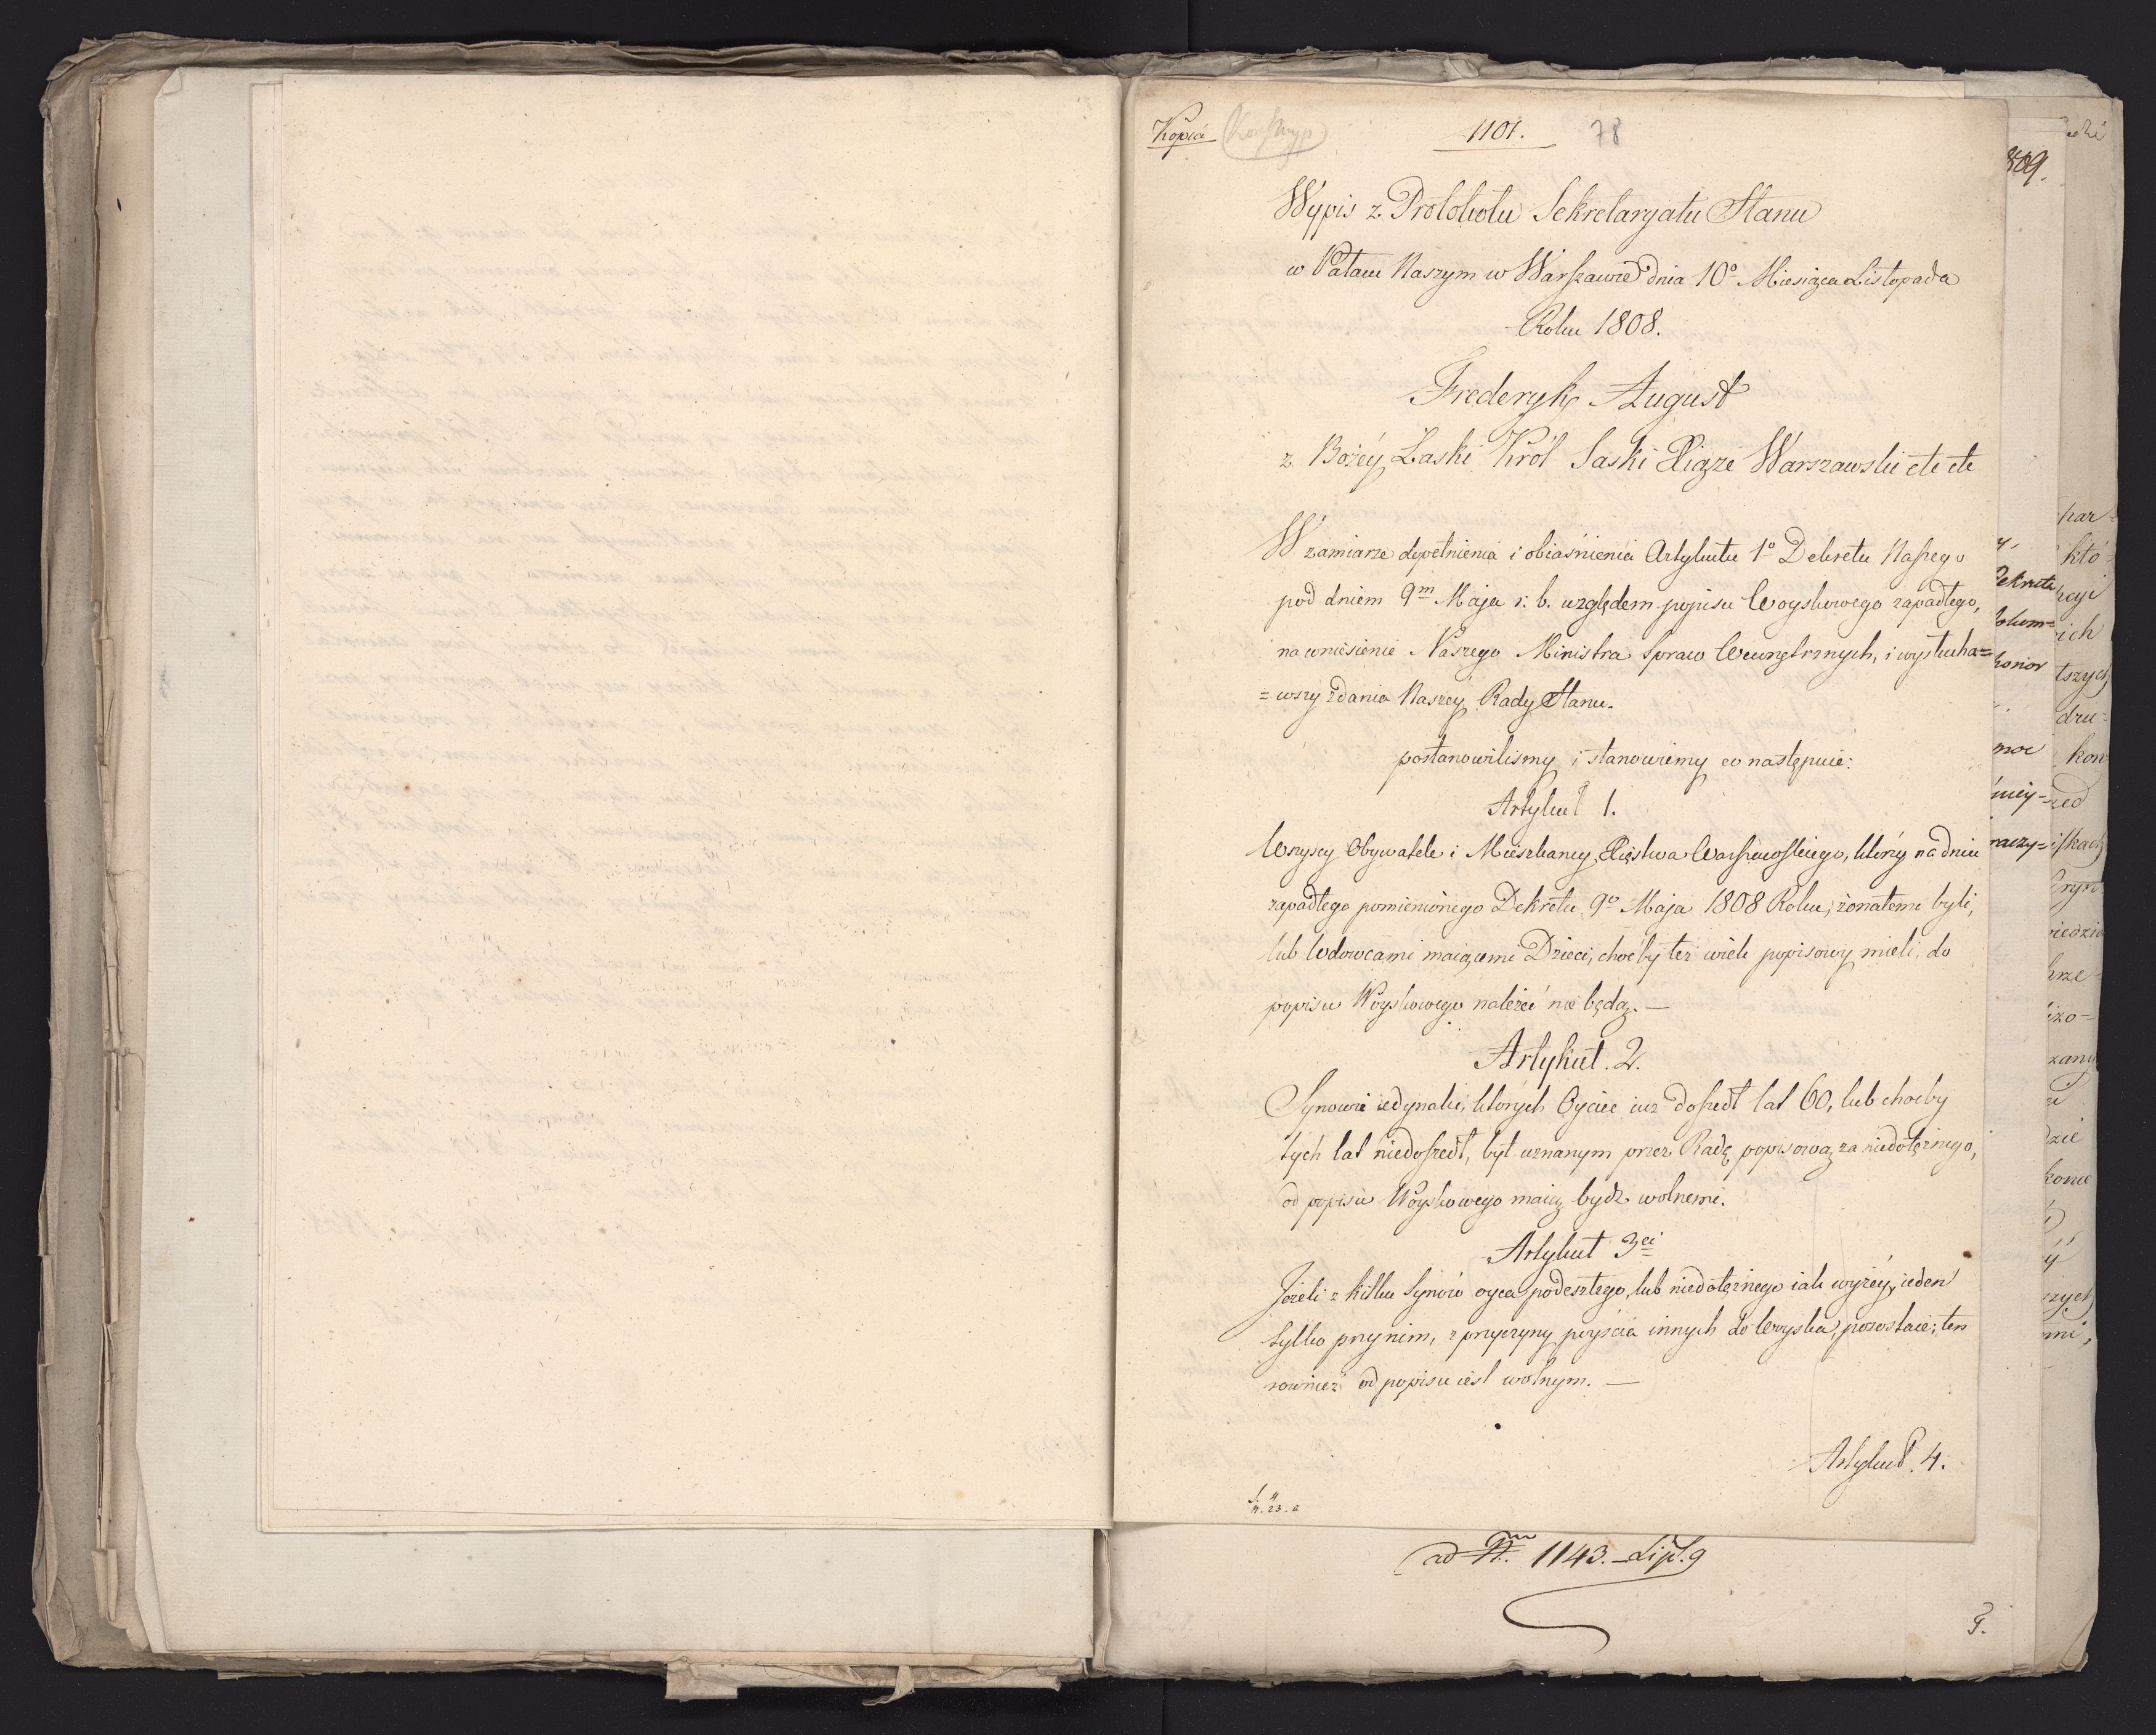 Kopia
1101.
78
Wypis z Protokołu Sekretaryatu Stanu
w Pałacu Naszym w Warszawie dnia 10º Miesiąca Listopada
Roku 1808.
Frederyk August
z Bożéy Łaski Król Saski Xiąże Warszawski etc etc
W zamiarze dopełnienia i obiaśnienia Artykułu 1º Dekretu Naszego
pod dniem 9m Maja r: b. względem popisu Woyskowego zapadłego,
na wniesienie Naszego Ministra Spraw Wewnętrznych, i wysłucha=
=wszy zdania Naszey Rady Stanu.
postanowilismy i stanowiemy co następuie:
Artykuł 1.
Wszyscy Obywatele i Mieszkancy Xięstwa Warszawskiego, którzy na dniu
zapadłego pomienionego Dekretu 9º Maja 1808 Roku, żonatemi byli,
lub Wdowcami maiącemi Dzieci, choćby też wiek popisowy mieli, do
popisu Woyskowego należeć nie będą. —
Artykuł. 2.
Synowie iedynaki, których Oyciec iuz doszedł lat 60, lub choćby
tych lat niedoszedł, był uznanym przez Radę popisową za niedołężnego,
od popisu Woyskowego maią bydz wolnemi.
Artykuł 3ci
Jeżeli z kilku Synów oyca podeszłego, lub niedołężnego iak wyżéy, ieden
tylko przy nim, z przyczyny pòyścia innych do Woyska, pozostaie; ten
rownież od popisu iest wolnym. —
Artykuł. 4.
ad Nm 1143. Lipt. 9
809.
Dekretu
honior
moc
naczy=
któ=
ich
tszych
dru=
kon
krze=
izo=
zany
konie